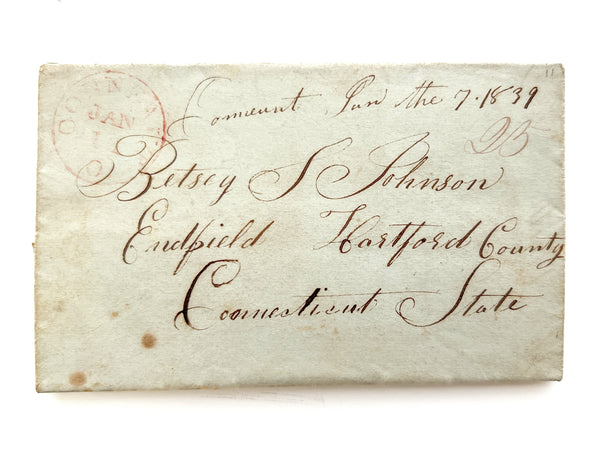 JAN
Conneaut Jan the 7. 1839
25
Betsey S Johnson
Endfield Hartford County
Connecticut State